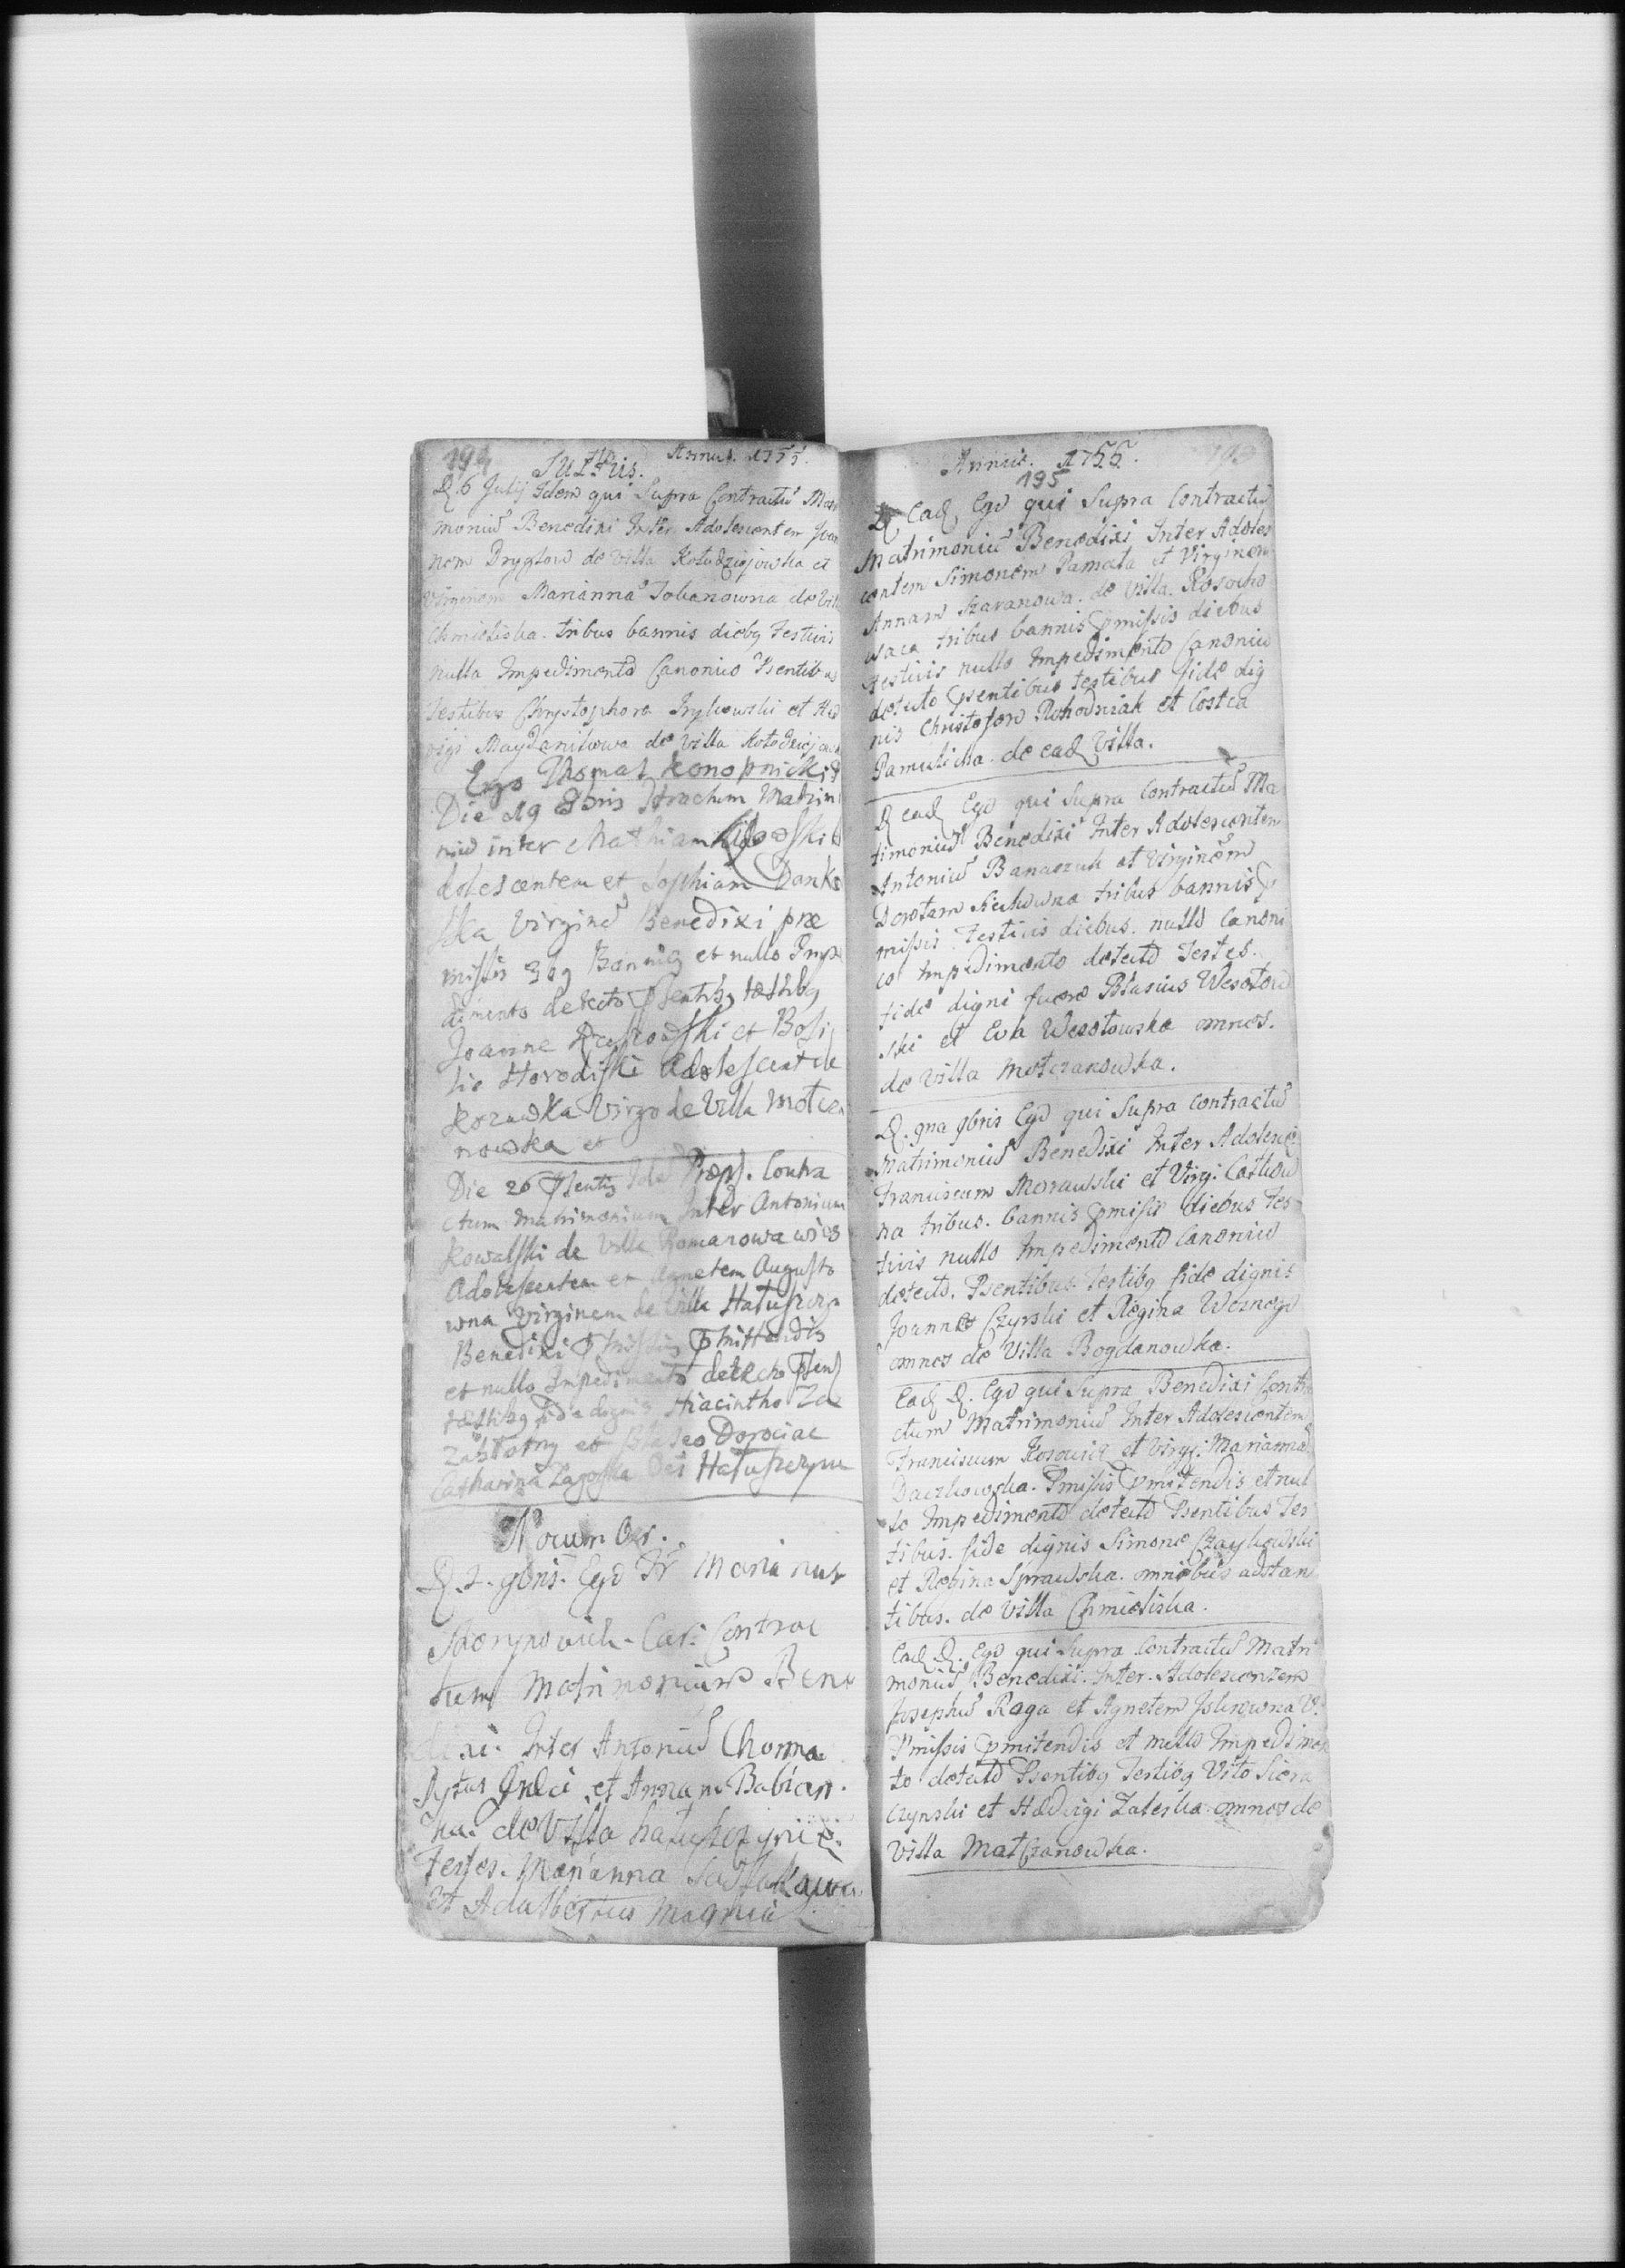 194 Julius. Annus. 1755.
D. 6 Julij Idem qui Supra Contractũ Matri
moniũ Benedixi Inter Adolescentem Joan
nem Drygtow de Villa Kołodziejowka et
Virginem Mariannã Tokanowna de Villa
Chmieliska. tribus bannis diebq festivis
nullo Impedimento Canonico Psentibus
Testibus Chrystophoro Trykowski et Hed
vigi Maydanikowa de Villa Kołodziejowka
Ego Thomas Konopnicki
Die 19 8bris Ctractum Matrim
niũ inter Mathiam A
dolescentem et Sophiam Danko
ska Virginẽ Benedixi præ
missis 3bq Bannis et nullo Impe
dimento detecto Psentibq testibq
Joanne et Basi
lio Horodiski Adolescent de
Virgo de Villa Motcza
nowka et
Die 26 Psentis Idẽ Præps. Contra
ctum Matrimonium Inter Antonium
Kowalski de Villa Romanowa wies
Adolescentem et Agnetem Augusto
wna Virginem de Villa Hałuszczyn
Benedixi Pmissis Pmittendis
et nullo Impedimento detecto Psens
testibq fide dignis Hiacintho Za
et Dorociae
Catharina Zagorska Hałuszczyn
Novum Ber.
D. 2. 9bris. Ego Fr Marianus
Skorypovich. Contrac
tum Matrimonium Bene
dixi. Inter Antoniũ Chorma
et Annam Babian.
na. de Villa hałuszczynie.
Testes. Marianna
et Adalbertus
Annus. 1755.
195
D Ead Ego qui Supra Contractũ
Matrimoniũ Benedixi Inter Adoles
centem Simonem Pamuła et Virginem
Annam Szaranowa. de Villa. Rosocho
waca tribus bannis Pmissis diebus
festivis nullo Impedimento Canonico
detecto Psentibus testibus fide dig
nis Christofor Rohodniak et Costca
Pamulicha. de ead Villa.
D ead Ego qui Supra Contractũ Ma
trimoniũ Benedixi Inter Adolescentem
Antoniũ Banaczuk et Virginem
Dorotam Siekowna tribus bannis P
missis. Festivis diebus. nullo Canoni
co Impedimento detecto Testes.
fide digni fuere Blasius Wesołow
ski et Eva Wesołowska omnes.
de Villa Motczanowka.
D. 9na 9bris Ego qui Supra Contractũ
Matrimoniũ Benedixi Inter Adolesce
Franciscum Morawski et Virgi. Cothow
na tribus. bannis Pmissis diebus fes
tivis nullo Impedimento Canonico
detecto. Psentibus Testibq fide dignis
Joannes Czyrski et Regina Weznego
omnes de Villa Bogdanowka.
Ead D. Ego qui Supra Benedixi Contra
ctum Matrimoniũ Inter Adolescentem
Franciscum Kosowicz et Virgi. Mariannã
Daczkowska. Pmissis Pmitendis et nul
lo Impedimento detecto Psentibus Tes
tibus. fide dignis Simone Czaykowski
et Regina Sprawska. omnibus adstan
tibus. de Villa Chmieliska.
Ead D. Ego qui Supra Contractũ Matri
moniũ Benedixi. Inter. Adolescentem
Josephũ Raga et Agnetem V.
Pmissis Pmitendis et nullo Impedimen
to detecto Psentibq Testibq Vito Siera
czynski et Hedvigi Zaleska omnes de
Villa Matczanowka.